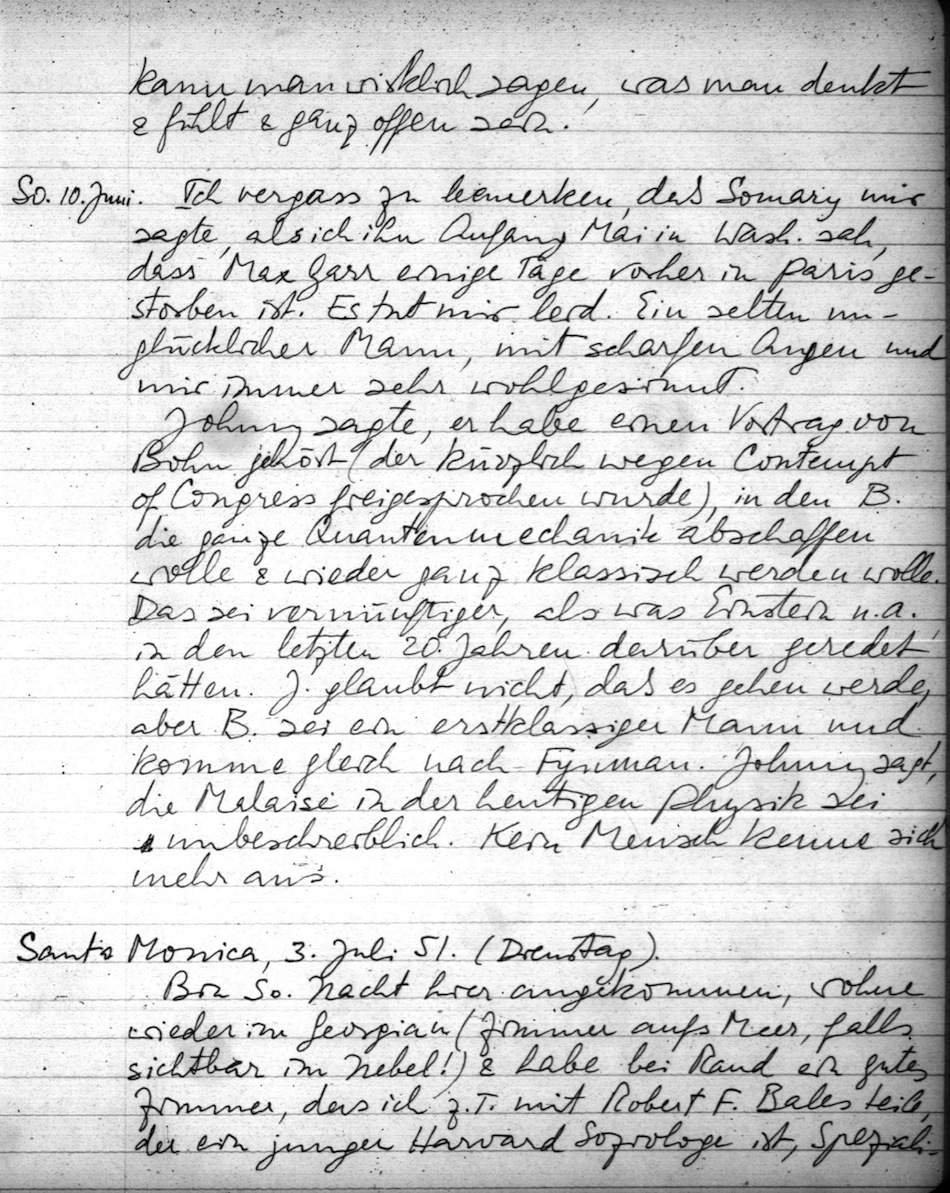 kann man wirklich sagen, was man denkt
& fühlt & ganz offen sein.
So. 10. Juni. Ich vergass zu bemerken, dass Somary mir
sagte, als ich ihn Anfang Mai in Wash. sah,
dass Max Garr einige Tage vorher in Paris ge-
storben ist. Es tut mir leid. Ein selten un-
glücklicher Mann, mit scharfen Augen und
mir immer sehr wohlgesinnt.
Johnny sagte, er habe einen Vortrag von
Bohm gehört (der kürzlich wegen Contempt
of Congress freigesprochen wurde), in den B.
die ganze Quantenmechanik abschaffen
wolle & wieder ganz klassisch werden wolle.
Das sei vernünftiger, als was Einstein u.a.
in den letzten 20. Jahren darüber geredet
hätten. J. glaubt nicht, dass es gehen werde,
aber B. sei ein erstklassiger Mann und
komme gleich nach Fynman. Johnny sagt,
die Malaise in der heutigen Physik sei
unbeschreiblich. Kein Mensch kenne sich
mehr aus.
Santa Monica, 3. Juli 51. (Dienstag).
Bin So. Nacht hier angekommen, wohne
wieder im Georgian (Zimmer aufs Meer, falls
sichtbar im Nebel!) & habe bei Rand ein gutes
Zimmer, das ich z.T. mit Robert F. Bales teile,
der ein junger Harvard Soziologe ist, Speziali-